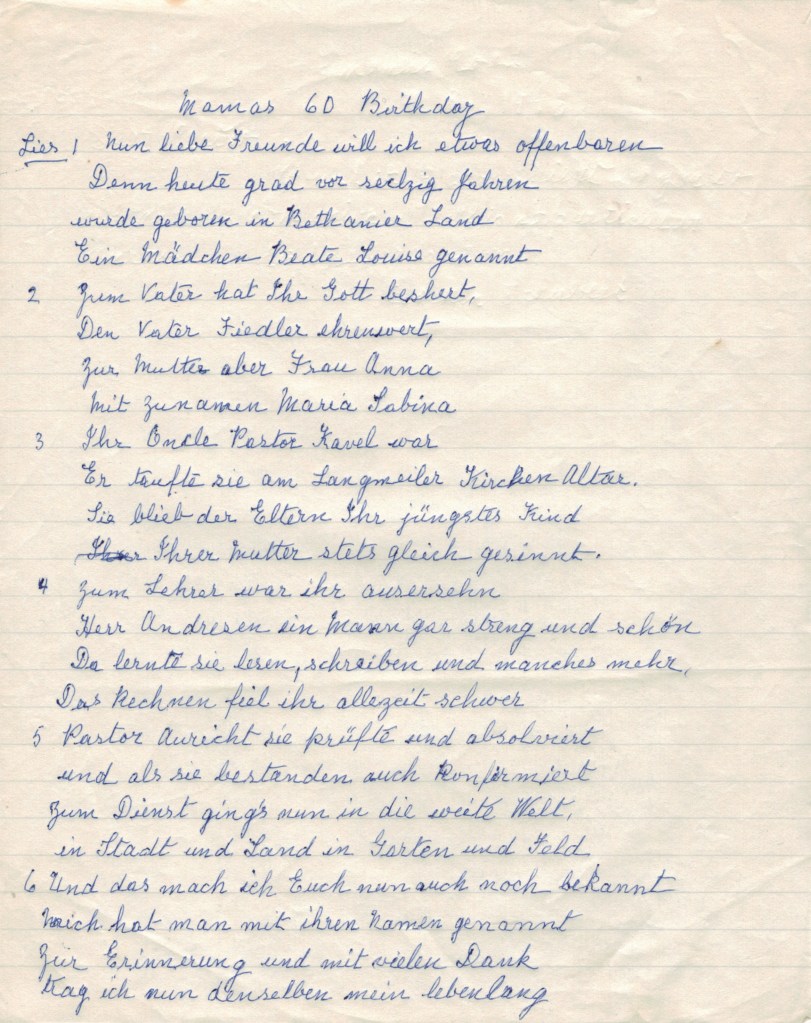 Mamas 60 Birthday
Lies 1 Nun liebe Freunde will ich etwas offenbaren
Denn heute grad vor sechzig Jahren
wurde geboren in Bethanier Land
Ein Mädchen Beate Louise genannt
2 Zum Vater hat Ihr Gott beshert,
Den Vater Fiedler ehrenwert,
Zur Mutter aber Frau Anna
Mit zunamen Maria Sabina
3 Ihr Oncle Pastor Kavel war
Er taufte sie am Langmeiler Kirchen Altar.
Sie blieb der Eltern Ihr jüngstes Kind
Ihrer Mutter stets gleich gesinnt.
4 Zum Lehrer war ihr ausersehn
Herr Andresen ein Mann gar streng und schön
Da lernte sie lesen, schreiben und manches mehr,
Das Rechnen fiel ihr allezeit schwer
5 Pastor Auricht sie prüfte und absolviert
und als sie bestanden auch konfirmiert
Zum Dienst ging's nun in die weite Welt,
in Stadt und Land in Garten und Feld
6 Und das mach ich Euch nun auch noch bekannt
Mich hat man mit ihren Namen genannt
Zur Erinnerung und mit vielen Dank
Trag ich nun denselben mein lebenlang